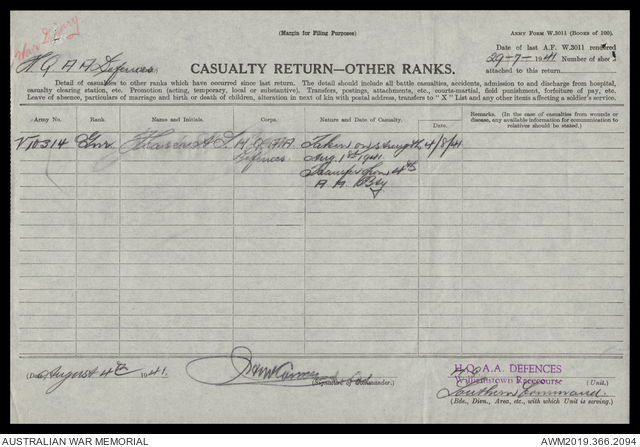 War Diary
(Margin for Filing Purposes)
ARMY FORM W.3011 (BOOKS OF 100).
Date of last A.F. W.3011 rendered
H.Q. A A Defences
29-7-1941 Number of sheets 1
CASUALTY RETURN—OTHER RANKS.
attached to this return.
Detail of casualties to other ranks which have occurred since last return. The detail should include all battle casualties, accidents, admission to and discharge from hospital,
casualty clearing station, etc. Promotion (acting, temporary, local or substantive). Transfers, postings, attachments, etc., courts-martial, field punishment, forfeiture of pay, etc.
Leave of absence, particulars of marriage and birth or death of children, alteration in next of kin with postal address, transfers to "X" List and any other items affecting a soldier's service.
Army No. Rank. Name and Initials. Corps. Nature and Date of Casualty. Date. Remarks. (In the case of casualties from wounds or disease, any available information for communication to relatives should be stated.)
V10314 Gnr A. L. H Q AAA Taken on strength 4/8/41
Defences Aug. 1st 1941
Transfer from 4th
A. A. Bty
(Date) August 4th 1941.
(Signature of Commander.)
H.Q. A.A. DEFENCES
Williamstown Racecourse (Unit.)
Southern Command
(Bde., Divn., Area, etc., with which Unit is serving.)
AUSTRALIAN WAR MEMORIAL
AWM2019.366.2094